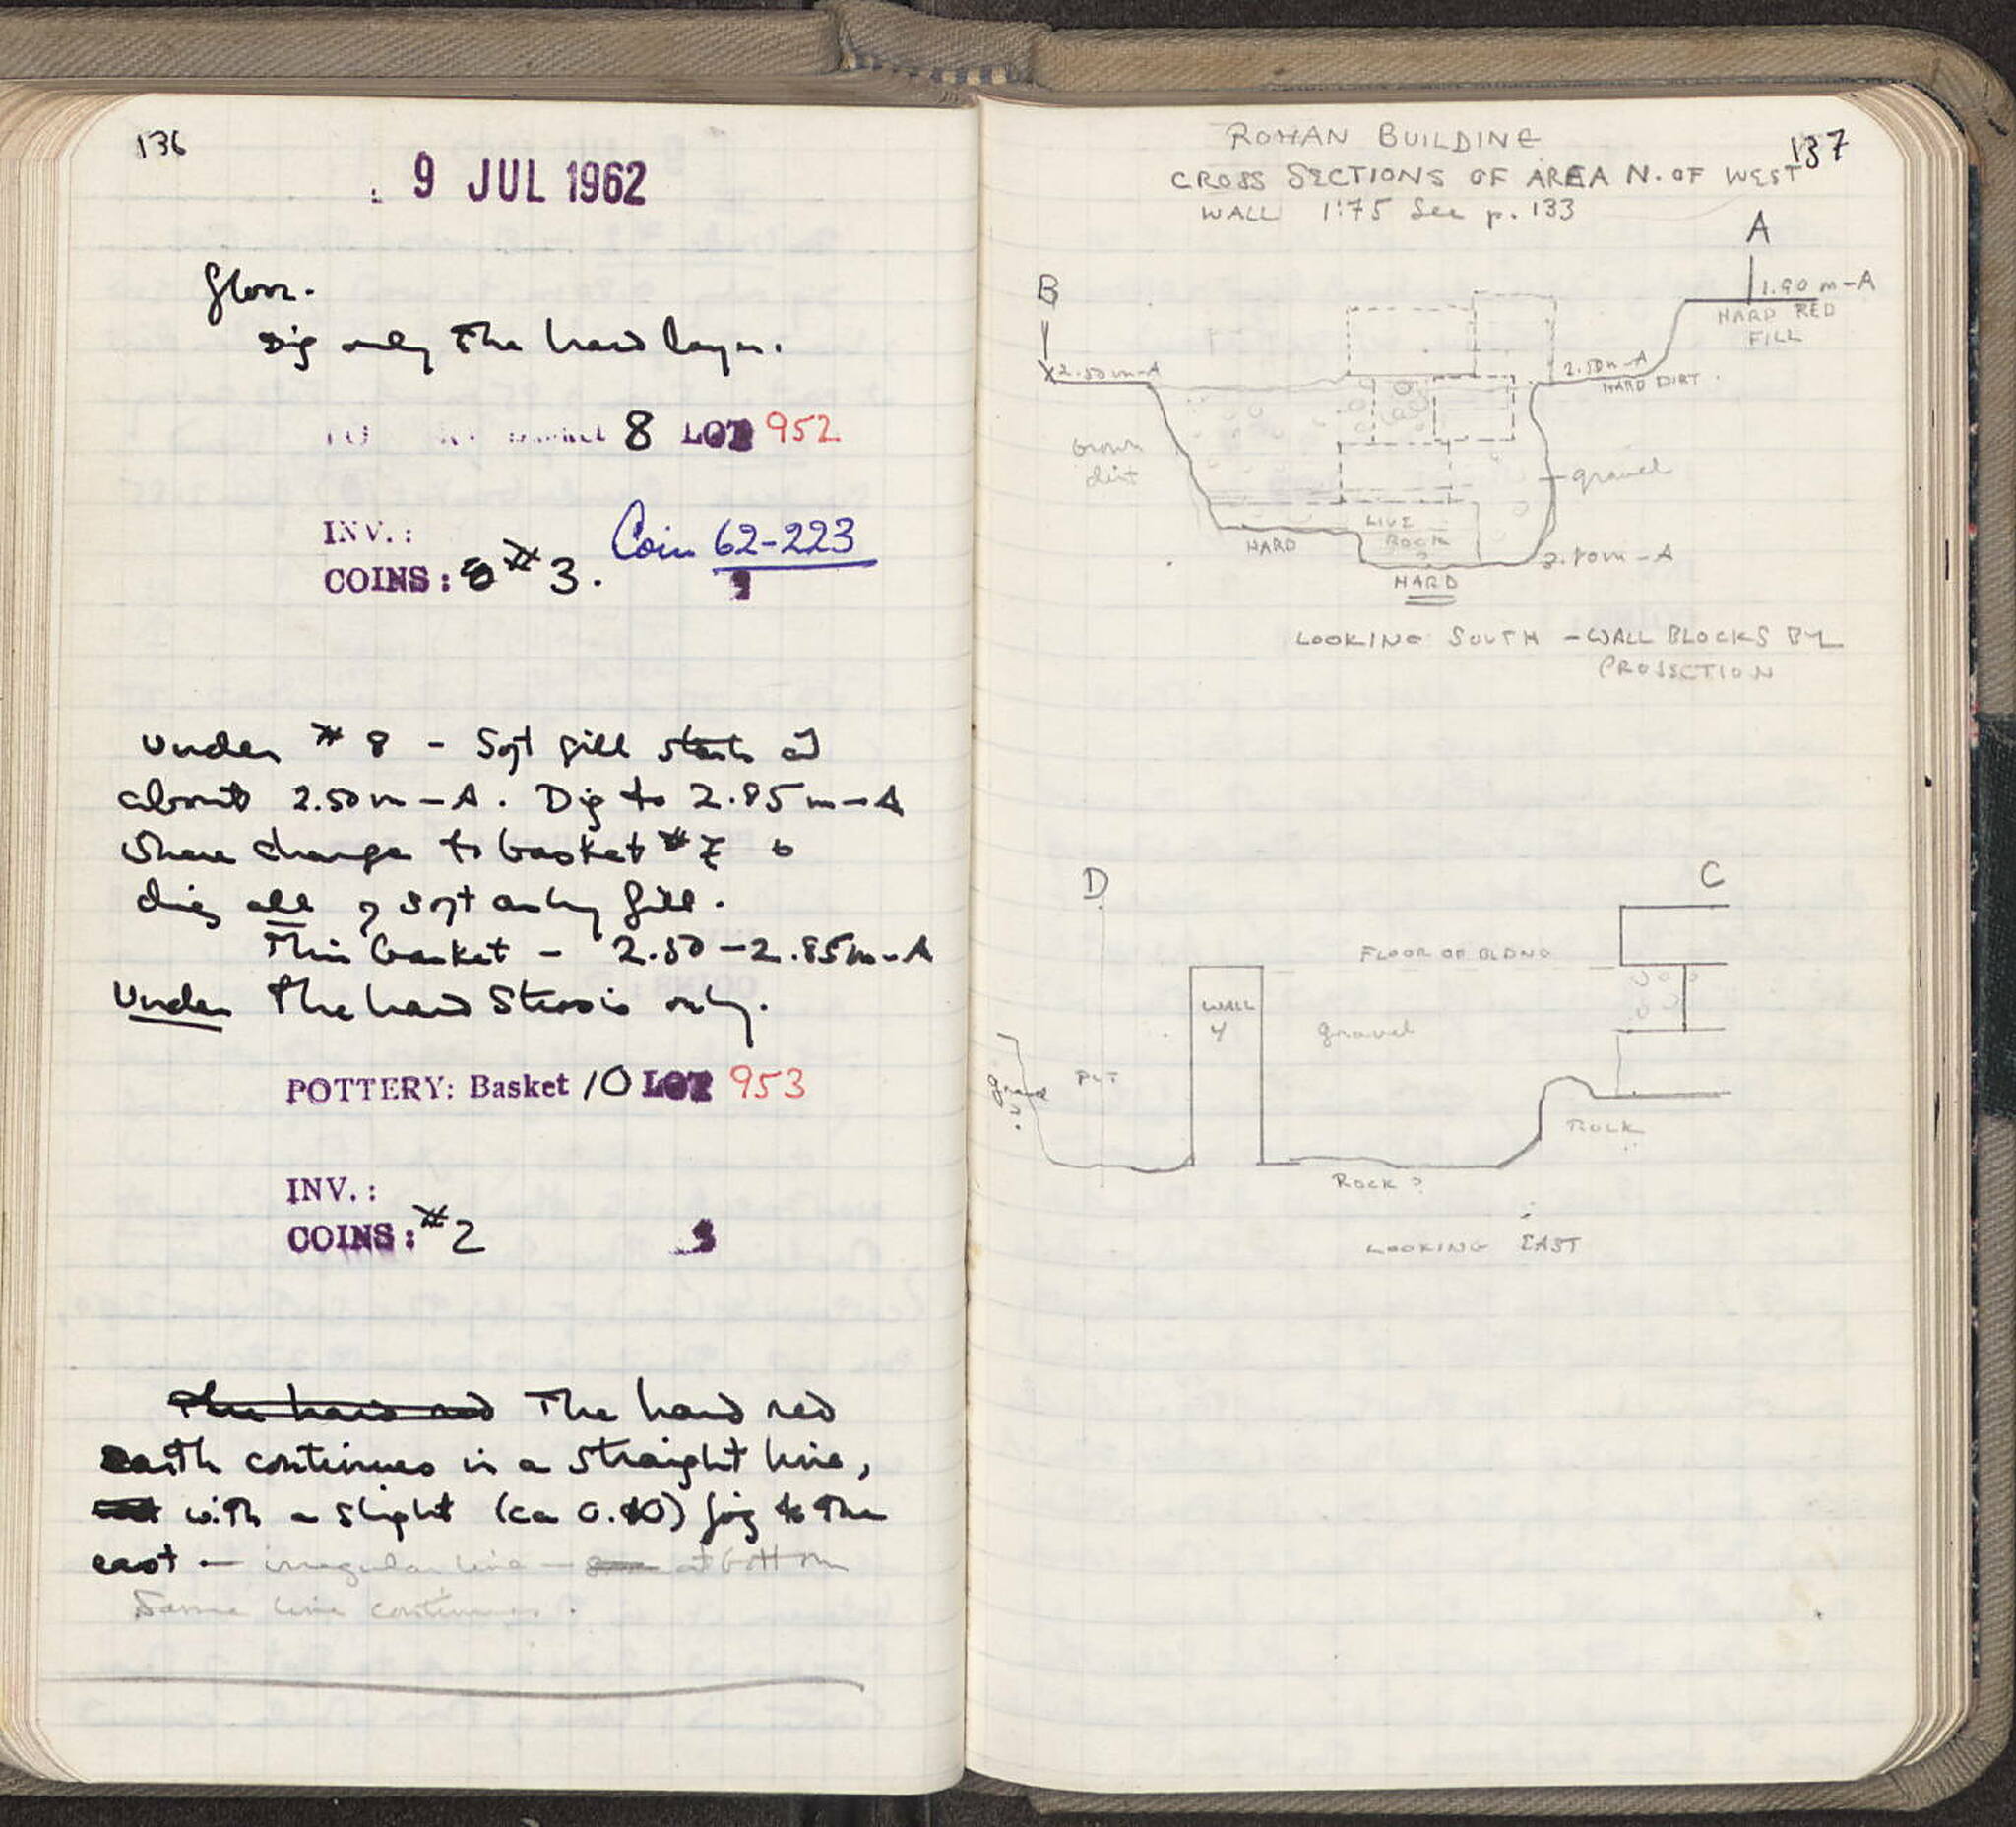 136
9 JUL 1962
floor.
Dig only the hard layer.
Basket 8 LOT 952
INV.:
COINS: #3. Coin 62-223
Under #8 - Soft fill starts at
about 2.50 m-A. Dig to 2.85 m-A
where change to basket #7
dig all of soft ashy fill.
This basket - 2.50-2.85m-A
Under the hard Strosis only.
POTTERY: Basket 10 LOT 953
INV.:
COINS: #2
The hard red The hard red
earth continues in a straight line,
with a slight (ca 0.10) jog to the
east - irregular line - at bottom
Same line continues.
137
ROMAN BUILDING
CROSS SECTIONS OF AREA N. OF WEST
WALL 1:75 See p. 133
A
B
1.90 m-A
HARD RED
FILL
2.50 m-A
2.50m-A
HARD DIRT
brown
dirt
gravel
LIVE
ROCK
?
HARD
HARD
2.10m-A
LOOKING SOUTH - WALL BLOCKS BY
PROJECTION
D
C
FLOOR OF BLDNG
WALL
4
gravel
gravel
?
PIT
ROCK
ROCK?
LOOKING EAST